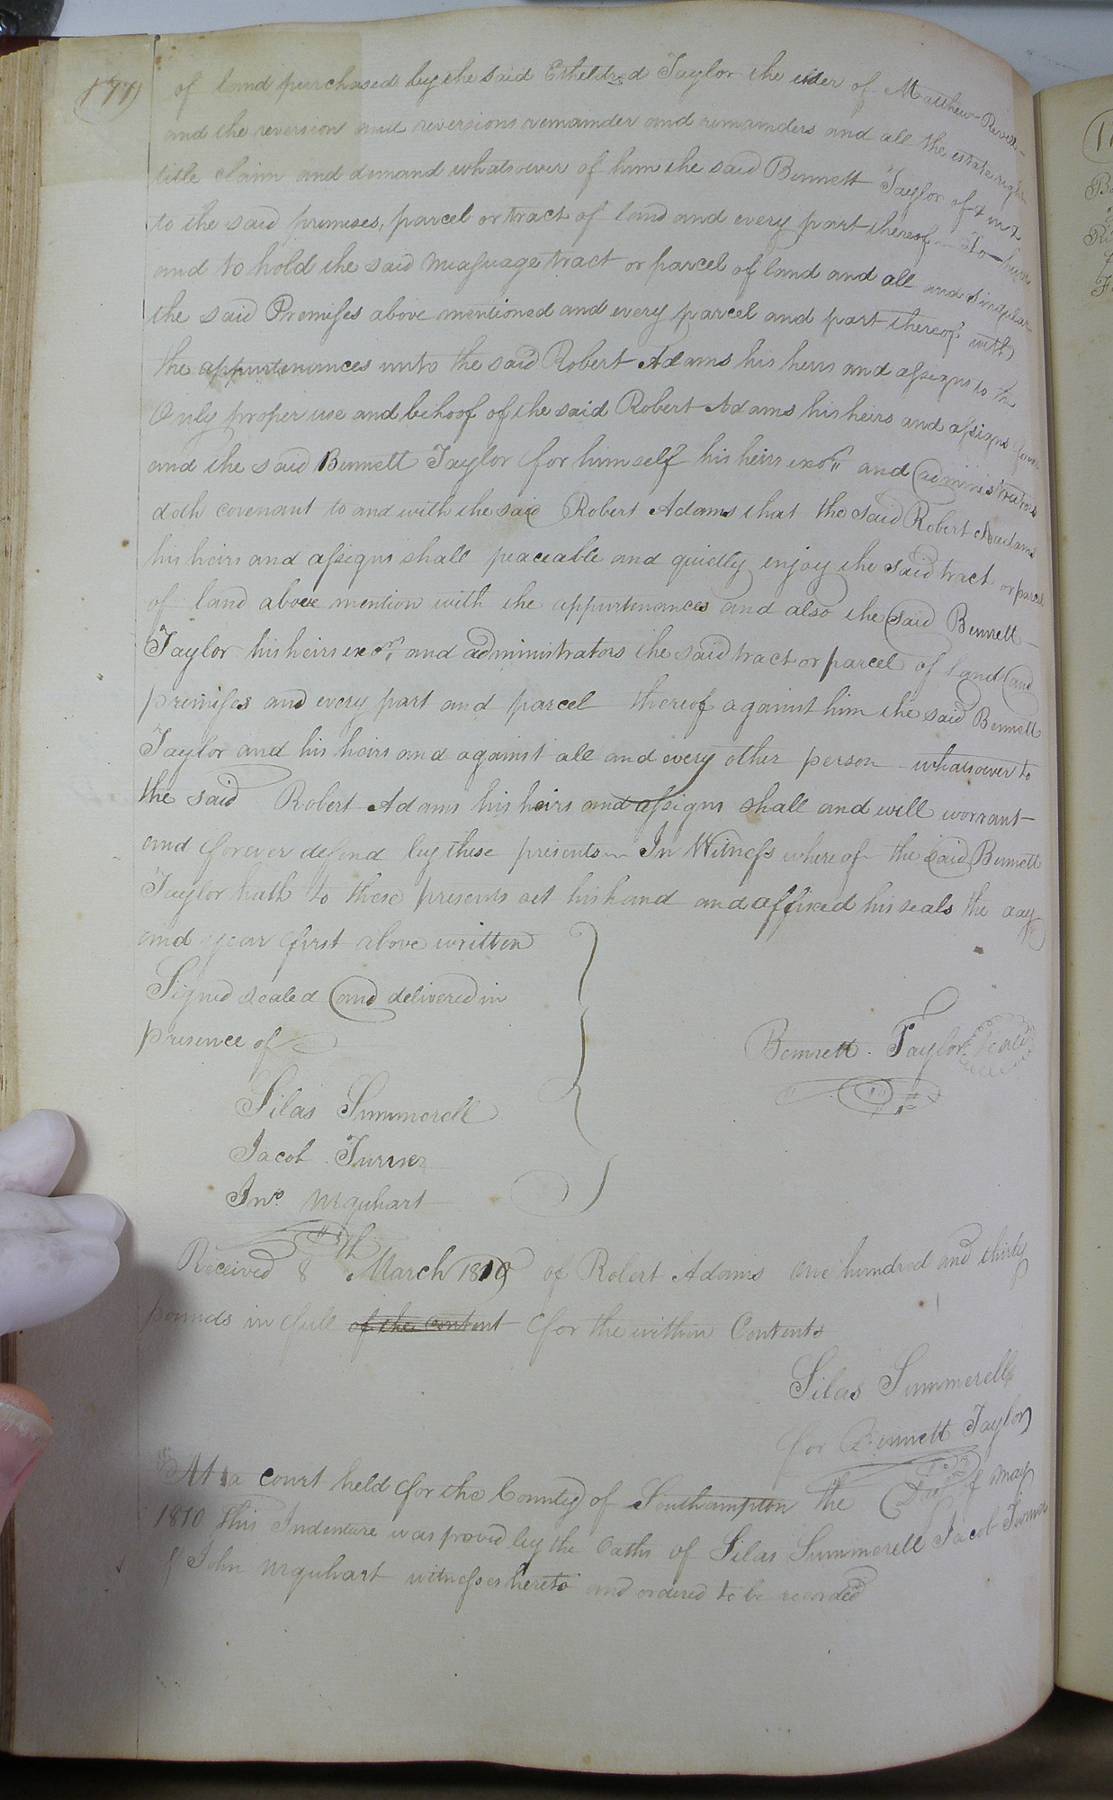 177)
of land purchased by the said Etheldred Taylor the elder of Matthew
and the reversion and reversions remainder and remainders and all the estate right
title claim and demand whatsoever of him the said Bennett Taylor of & in &
to the said premises, parcel or tract of land and every part thereof To have
and to hold the said Measuage tract or parcel of land and all and singular
the said Premises above mentioned and every parcel and part thereof with
the appurtenances unto the said Robert Adams his heirs and assigns to the
Only proper use and behoof of the said Robert Adams his heirs and assigns
and the said Bennett Taylor for himself his heirs exors and administrators
doth covenant to and with the said Robert Adams that the said Robert Adams
his heirs and assigns shall peaceable and quietly enjoy the said tract or parcel
of land above mention with the appurtenances and also the said Bennett
Taylor his heirs exors and administrators the said tract or parcel of land and
premises and every part and parcel thereof against him the said Bennett
Taylor and his heirs and against all and every other person whatsoever to
the said Robert Adams his heirs and assigns shall and will warrant
and forever defend by these presents In Witness whereof the said Bennett
Taylor hath to these presents set his hand and affixed his seals the day
and year first above written
Signed sealed and delivered in
presence of
Bennett Taylor Seal
Silas Summerell
Jacob Turner
Jno. Urquhart
Received 8th March 1810 of Robert Adams One hundred and thirty
pounds in full of the content for the within Contents
Silas Summerell
for Bennett Taylor
At a court held for the County of Southampton the of May
1810 This Indenture was proved by the Oaths of Silas Summerell Jacob Turner
& John Urquhart witnesses hereto and ordered to be recorded